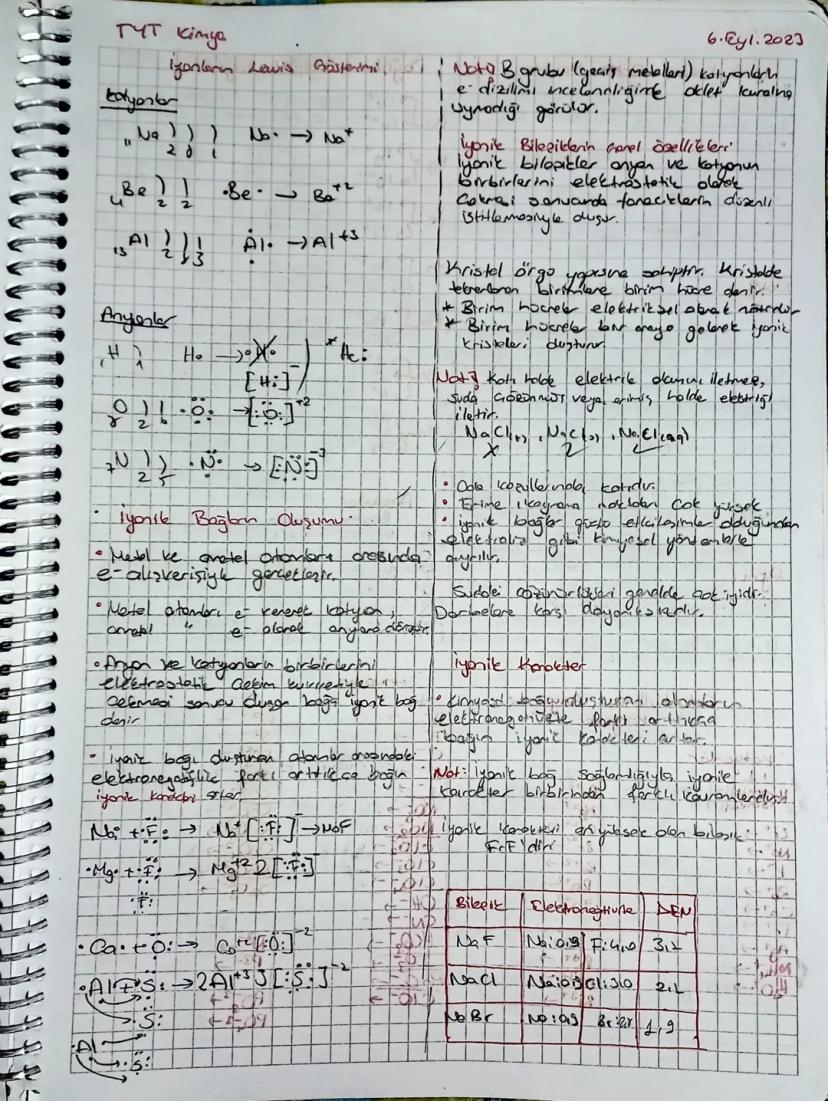 TYT Kimya
6.Eyl.2023
İyonların Lewis Gösterimi
Katyonlar
11Na ) ) ) Na· → Na+
2 8 1
4Be ) ) ·Be· → Be+2
2 2
13Al ) ) ) Al· → Al+3
2 8 3
Anyonlar
1H ) H· → [H:]- *He:
1
8O ) ) ·Ö: → [:Ö:]+2
2 6
7N ) ) ·N· → [:N:]-3
2 5
· İyonik Bağların Oluşumu·
• Metal ve ametal atomları arasında
e- alışverişiyle gerçekleşir.
• Metal atomları e- vererek katyon,
ametal " e- alarak anyona dönüşür.
• Anyon ve katyonların birbirlerini
elektrostatik çekim kuvvetiyle
çekmesi sonucu oluşan bağa iyonik bağ
denir
• iyonik bağı oluşturan atomlar arasındaki
elektronegatiflik farkı arttıkça bağın
iyonik karakteri artar.
Na· + ·F: → Na+ [:F:]- → NaF
·Mg· + ·F: → Mg+2 2[:F:]-
·F:
·Ca· + Ö: → Ca+2 [:Ö:]-2
·Al + S: → 2Al+3 3[:S:]-2
·S:
·Al
·S:
Not: B grubu (geçiş metalleri) katyonların
e- dizilimi incelendiğinde oktet kuralına
uymadığı görülür.
İyonik Bileşiklerin Genel özellikleri
iyonik bileşikler anyon ve katyonun
birbirlerini elektrostatik olarak
çekmesi sonucunda taneciklerin düzenli
istiflemesiyle oluşur.
Kristal örgü yapısına sahiptir. Kristalde
tekrarlanan birimlere birim hücre denir.
* Birim hücreler elektriksel olarak nötrdür
* Birim hücreler bir araya gelerek iyonik
kristalleri oluşturur.
Not: Katı halde elektrik akımını iletmez,
suda çözünmüş veya erimiş halde elektriği
iletir.
NaCl(k), NaCl(s), NaCl(aq)
• Oda koşullarında katıdır.
• Erime kaynama noktaları çok yüksek
• iyonik bağlar güçlü etkileşimler olduğundan
elektroliz gibi kimyasal yöntemlerle
ayrılır.
Sudaki çözünürlükleri genelde çok iyidir.
Darbelere karşı dayanıksızdır.
İyonik Karakter
• Kimyasal bağı oluşturan atomların
elektronegatiflik farkı arttıkça
bağın iyonik karakteri artar.
Not: iyonik bağ sağlamlığıyla iyonik
karakter birbirinden farklı kavramlardır
iyonik karakteri en yüksek olan bileşik
FrF'dir
Bileşik Elektronegativite ΔEN
NaF Na:0,9 F:4,0 3,1
NaCl Na:0,9 Cl:3,0 2,1
NaBr Na:0,9 Br:2,8 1,9